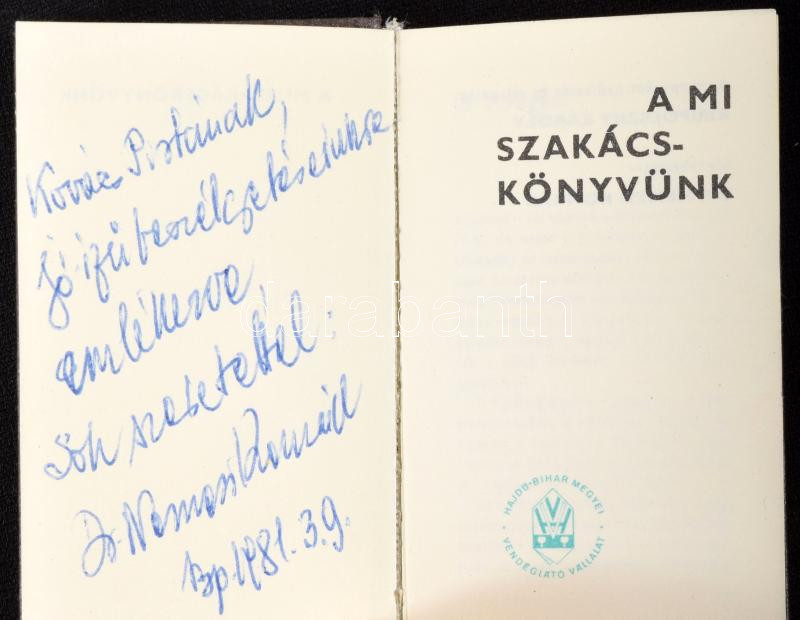 Kovács Pistának,
jó ízű beszélgetéseinkre
emlékezve
sok szeretettel:
Dr. Namási Konrád
Bp. 1981. 3. 9.
A MI
SZAKÁCS-
KÖNYVÜNK
HAJDÚ-BIHAR MEGYEI
VENDÉGLÁTÓ VÁLLALAT
darabanth